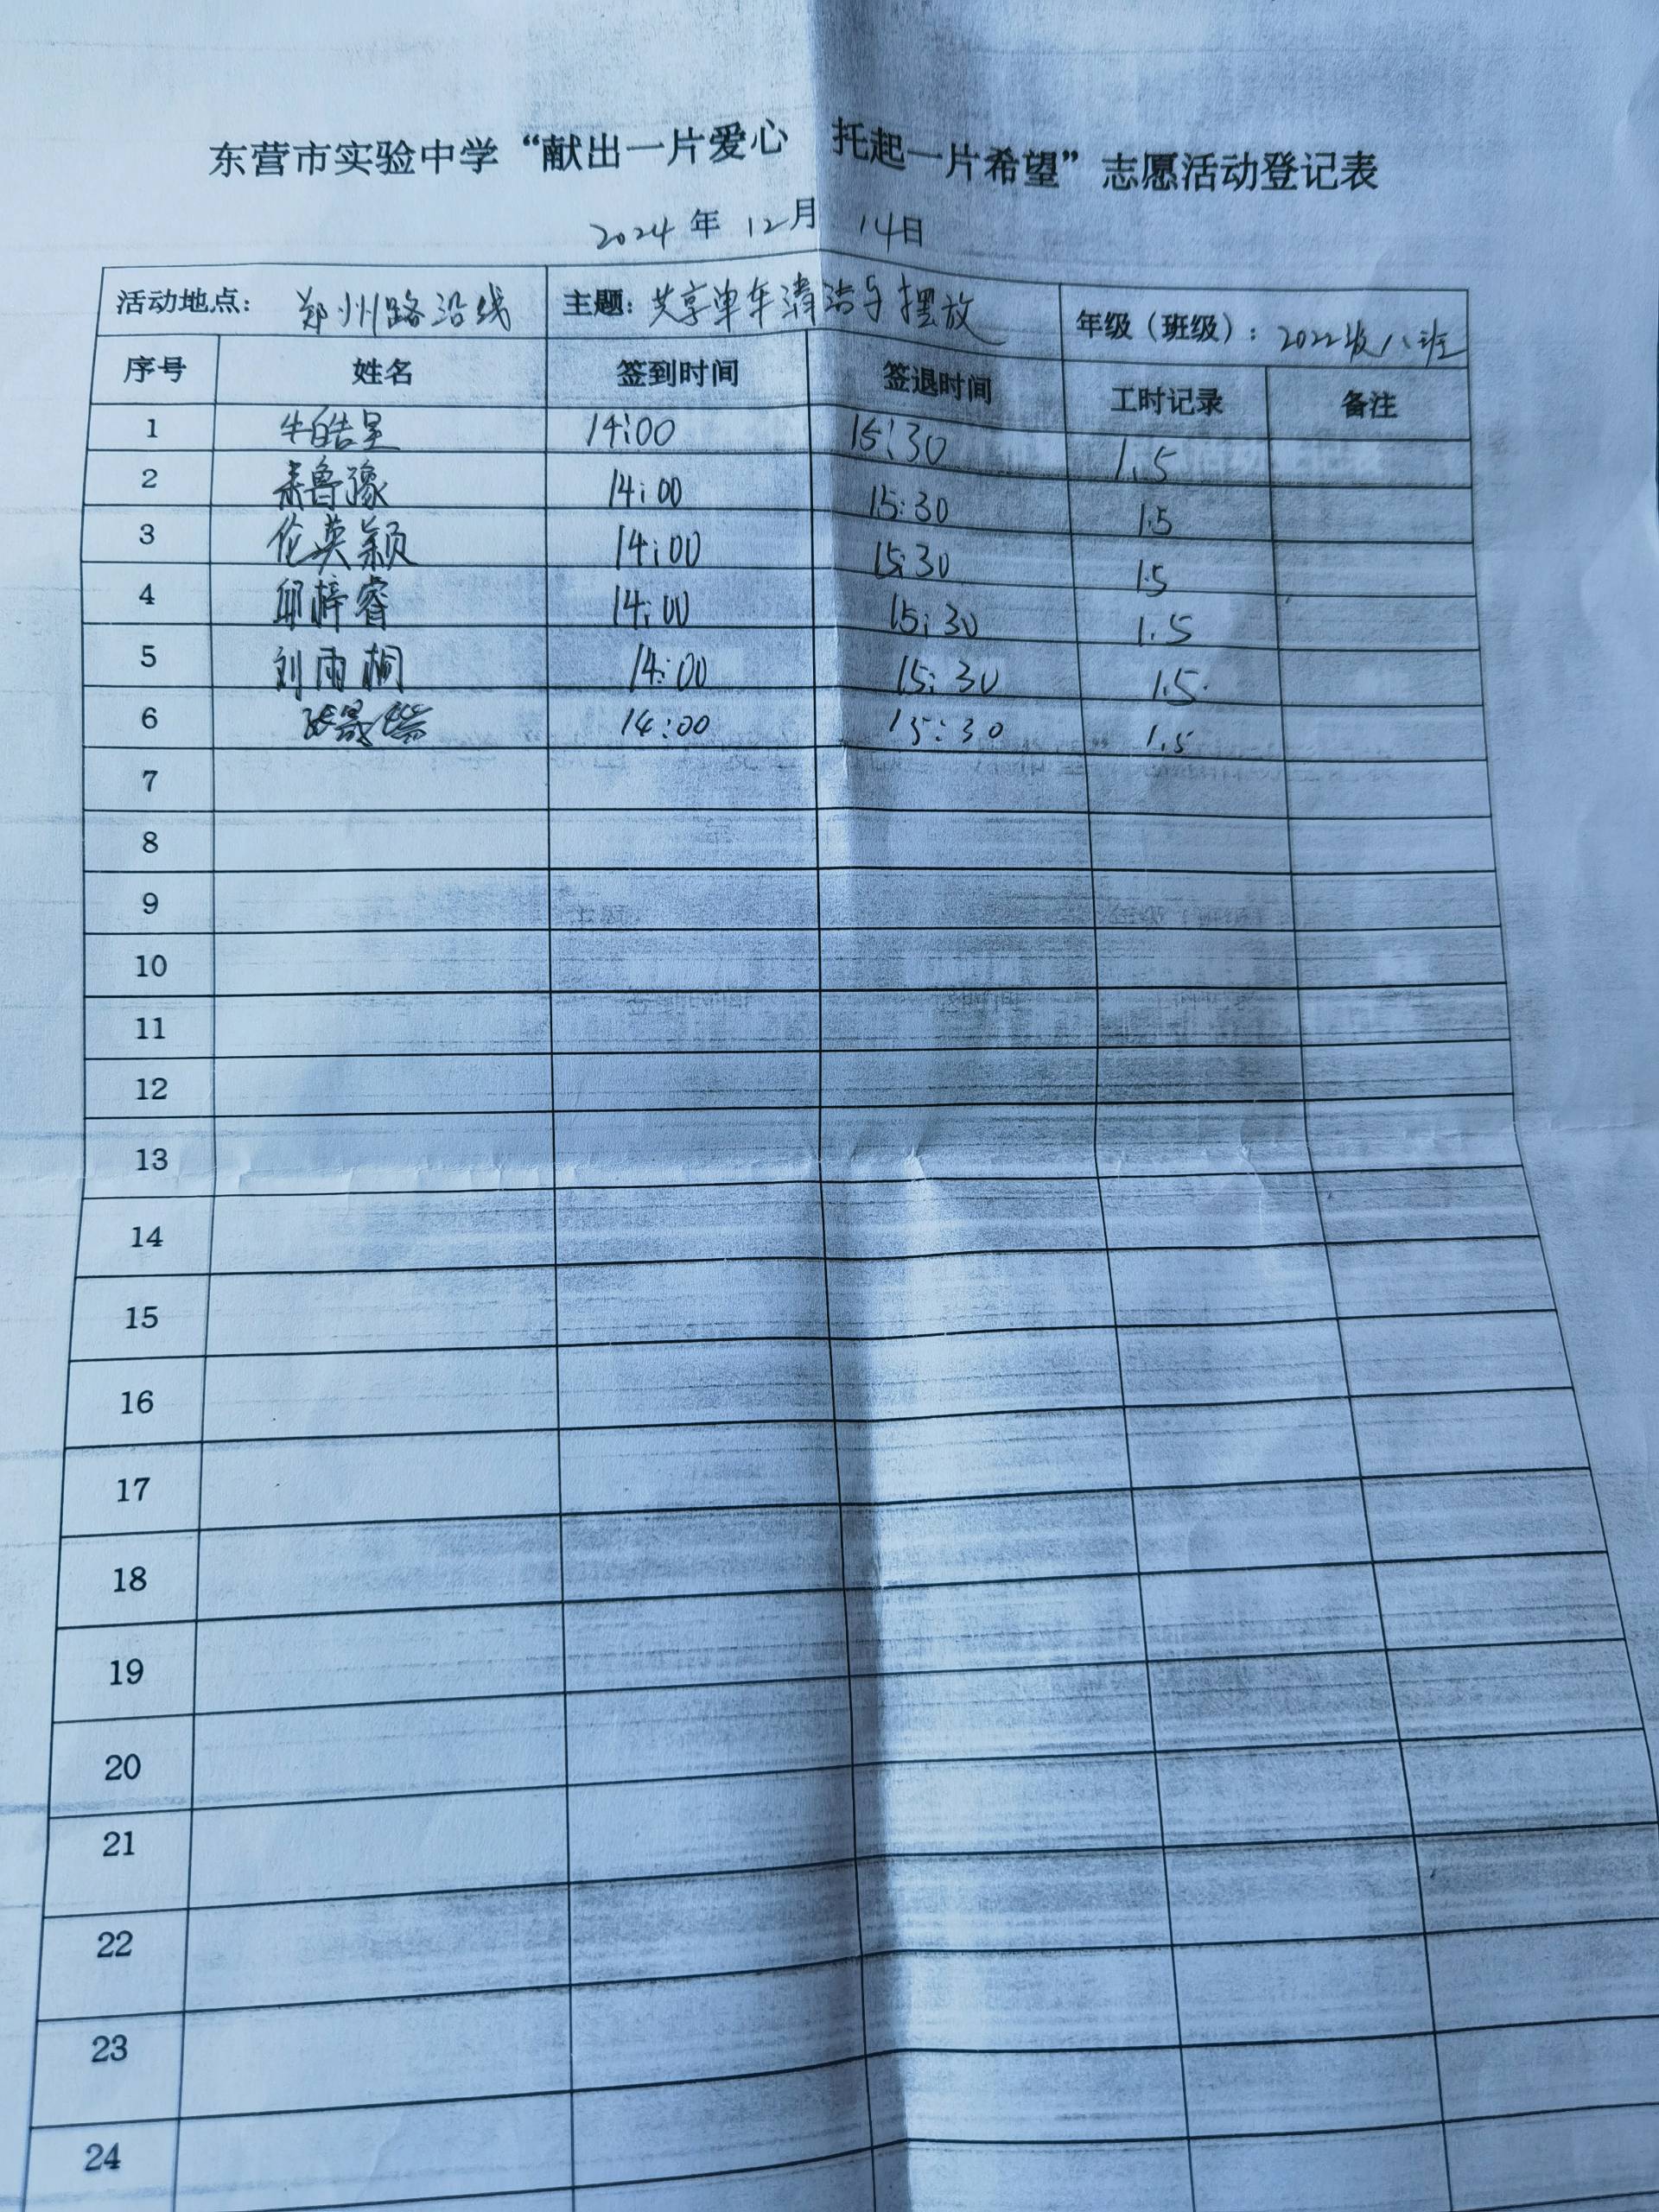 东营市实验中学“献出一片爱心 托起一片希望”志愿活动登记表
2024年12月14日
活动地点: 郑州路沿线 主题: 共享单车清洁与摆放 年级（班级）: 2022级八班
序号 姓名 签到时间 签退时间 工时记录 备注
1 牛皓昱 14:00 15:30 1.5
2 鲁豫 14:00 15:30 1.5
3 伦英颖 14:00 15:30 1.5
4 邱梓睿 14:00 15:30 1.5
5 刘雨桐 14:00 15:30 1.5
6 14:00 15:30 1.5
7
8
9
10
11
12
13
14
15
16
17
18
19
20
21
22
23
24